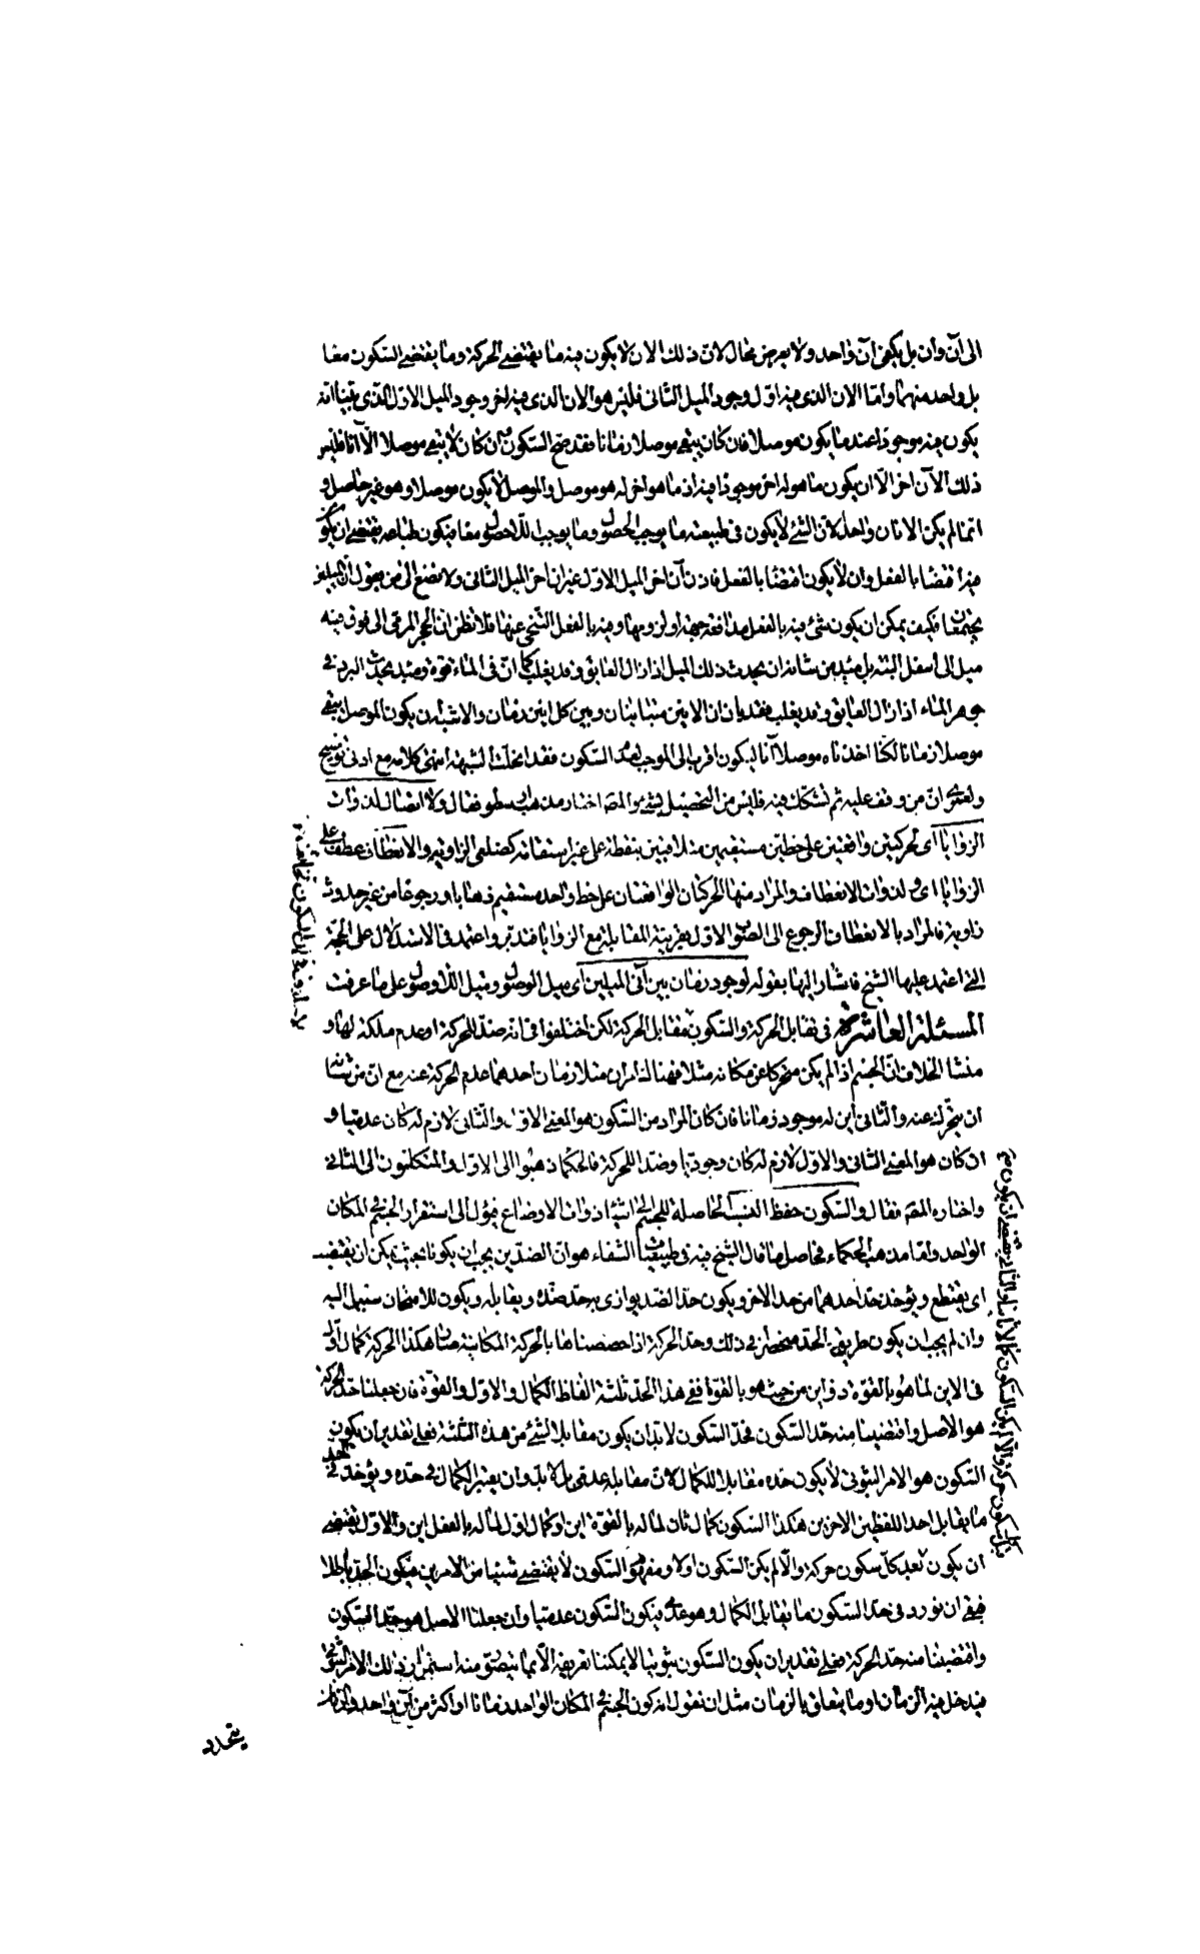 الى آن وان بل يكفى آن واحد ولا يعرض محال لان ذلك الان لا يكون فيه ما يقتضى الحركة وما يقتضى السكون معا
بل واحد منهما واما الان الذى فيه اول وجود الميل الثانى فليس هو الان الذى فيه اخر وجود الميل الاول الذى بينا انه
يكون فيه موجودا عند ما يكون موصلا فان كان يبقى موصلا زمانا فقد صح السكون وان كان لا يبقى موصلا الا آنا فليس
ذلك الآن اخرا الا ان يكون ما هو له اخر موجودا فيه اذ ما هو اخر له هو موصل والموصل لا يكون موصلا وهو غير حاصل و
انما لم يكن الانان واحدا لان الشئ لا يكون فى طبيعته ما يوجب الحصول وما يوجب اللاحصول معا فيكون طباعه يقتضى ان يكون
فيه اقتضا بالفعل وان لا يكون اقتضا بالفعل فاذن آن اخر الميل الاول غير ان اخر الميل الثانى ولا تصغ الى من يقول ان الميلين
يجتمعان فكيف يمكن ان يكون شئ فيه بالفعل مدافعة جهة او لزومها وفيه بالفعل التنحى عنها فلا تظن ان الحجر المرمى الى فوق فيه
ميل الى اسفل البتة بل مبدء من شانه ان يحدث ذلك الميل اذا زال العايق وقد يغلب كما ان فى الماء قوة ومبدء يحدث البرد فى
جوهر الماء اذا زال العايق وقد يغلب فقد بان ان الانين متباينان وبين كل انين زمان والاشبه ان يكون الموصل يبقى
موصلا زمانا لكنا اخذناه موصلا آنا ليكون اقرب الى الموجب لعدم السكون فقد انحلت الشبهة انتهى كلامه مع ادنى توضيح
ولعمرى ان من وقف عليه ثم تشكك فيه فليس من التحصيل بشئ والمصه اختار مذهب ارسطو فقال ولا اتصال لذوات
الزوايا اى لحركتين واقعتين على خطين مستقيمين متلاقيين بنقطة على غير استقامة كضلعى الزاوية والانعطاف عطف على
الزوايا اى ولذوات الانعطاف والمراد منها الحركتان الواقعتان على خط واحد مستقيم ذهابا ورجوعا من غير حدوث
زاوية فالمراد بالانعطاف الرجوع الى الصوب الاول بقرينة المقابلة مع الزوايا فتدبر واعتمد فى الاستدلال على الحجة
التى اعتمد عليها الشيخ فاشار اليها بقوله لوجود زمان بين آنى الميلين اى ميل الوصول وميل اللاوصول على ما عرفت
المسئلة العاشرة فى تقابل الحركة والسكون فمقابل الحركة لكن اختلفوا فى انه ضد للحركة او عدم ملكة لها و
منشا الخلاف ان الجسم اذا لم يكن متحركا عن مكانه مثلا فهناك امران متلازمان احدهما عدم الحركة عنه مع ان من شانه
ان يتحرك عنه والثانى اين له موجود زمانا فان كان المراد من السكون هو المعنى الاول والثانى لازم له كان عدميا و
ان كان هو المعنى الثانى والاول لازم له كان وجوديا وضدا للحركة فالحكماء ذهبوا الى الاول والمتكلمون الى الثانى
واختاره المصه فقال والسكون حفظ النسب الحاصلة للجسم الى اشياء ذوات الاوضاع فيؤل الى استقرار الجسم فى المكان
الواحد واما مذهب الحكماء فحاصل ما قال الشيخ فيه فى طبيعيات الشفاء هو ان الضدين يجب ان يكونا بحيث يمكن ان يقتضب
اى يقتطع ويؤخذ حد احدهما من حد الاخر ويكون حد الضد يوازى بحد ضده ويقابله ويكون للامتحان سبيل اليه
وان لم يجب ان يكون طريق الحد منحصرا فى ذلك وحد الحركة اذا خصصناها بالحركة المكانية هكذا الحركة كمال اول
فى الاين لما هو بالقوة ذو اين من حيث هو بالقوة ففى هذا الحد ثلثة الفاظ الكمال والاول والقوة فان جعلنا حد الحركة
هو الاصل واقتضبنا منه حد السكون فحد السكون لا بد ان يكون مقابلا لشئ من هذه الثلثة فعلى تقدير ان يكون
السكون هو الامر الثبوتى لا يكون حده مقابلا للكمال لان مقابله عدمى بل لا بد وان يعتبر الكمال فى حده ويؤخذ فى الحد
ما يقابل احد اللفظين الاخرين هكذا السكون كمال ثان لما له بالقوة اين او كمال اول لما له بالفعل اين والاول يقتضى
ان يكون بعد كل سكون حركة والا لم يكن السكون اولا ومفهوم السكون لا يقتضى شيئا من الامرين فيكون الحد باطلا
فبقى ان نورد فى حد السكون ما يقابل الكمال وهو عدمى فيكون السكون عدميا وان جعلنا الاصل هو حد السكون
واقتضبنا منه حد الحركة فعلى تقدير ان يكون السكون ثبوتيا لا يمكننا تعريفه الا بما يتصور منه استمرار ذلك الامر الثبوتى
فيدخل فيه الزمان او ما يتعلق بالزمان مثل ان نقول انه كون الجسم فى المكان الواحد زمانا او اكثر من آن واحد والزمان
يتحدد